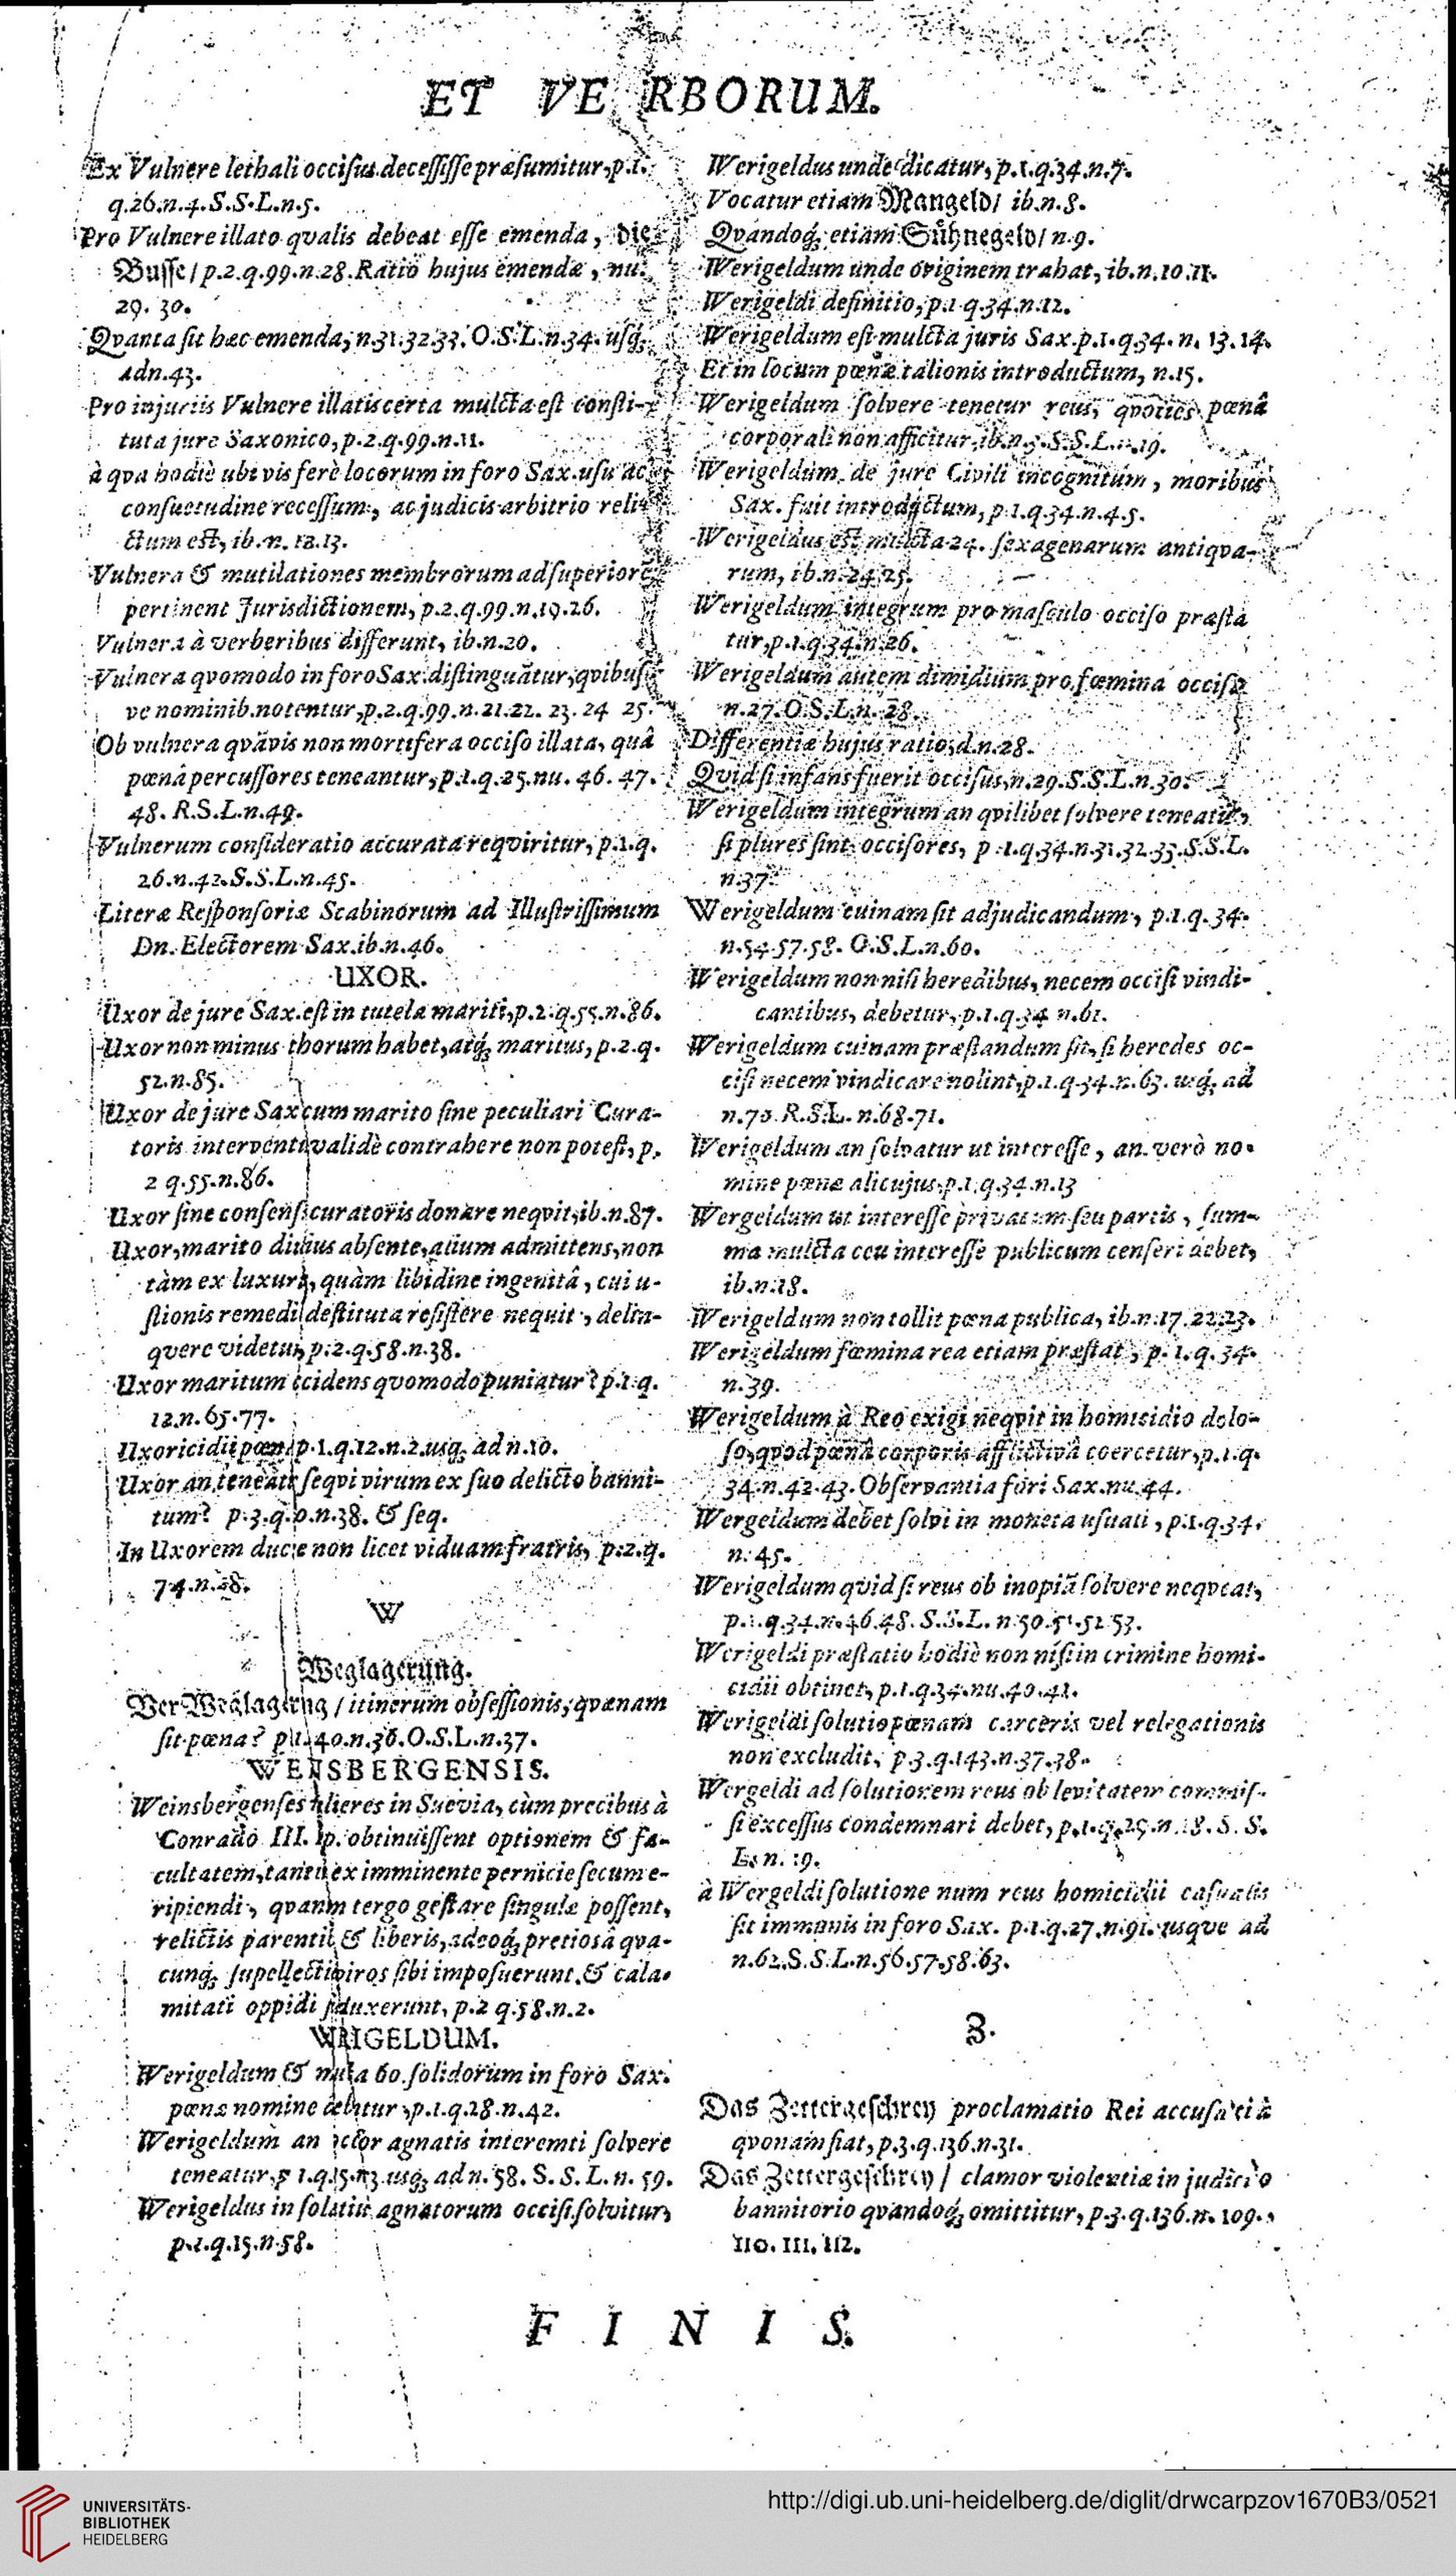 ET VERBORUM.
Ex Vulnere lethali occiſus deceſſiſſe præſumitur, p.1.
q.26.n.4.S.S.L.n.5.
Pro Vulnere illato qvalis debeat eſſe emenda, die
Buſſe / p.2.q.99.n.28. Ratio hujus emendæ, nu.
29. 30.
Qvanta ſit hæc emenda, n.31.32.33. O.S.L.n.34. uſq́;
adn.43.
Pro injuriis Vulnere illatis certa mulcta eſt conſti-
tuta jure Saxonico, p.2.q.99.n.11.
à qva hodiè ubivis ferè locorum in foro Sax. uſu ac
conſuetudine receſſum, ac judicis arbitrio reli-
ctum eſt, ib.n.12.13.
Vulnera & mutilationes membrorum ad ſuperiorē
pertinent Jurisdictionem, p.2.q.99.n.19.26.
Vulnera à verberibus differunt, ib.n.20.
Vulnera qvomodo in foro Sax. diſtinguātur, qvibuſ-
ve nominib. notentur, p.2.q.99.n.21.22. 23. 24 25.
Ob vulnera qvāvis non mortifera occiſo illata, quâ
pœnâ percuſſores teneantur, p.1.q.25.nu. 46. 47.
48. R.S.L.n.49.
Vulnerum conſideratio accurata reqviritur, p.1.q.
26.n.42.S.S.L.n.45.
Literæ Reſponſoriæ Scabinorum ad Illuſtriſſimum
Dn. Electorem Sax. ib.n.46.
UXOR.
Uxor de jure Sax. eſt in tutela mariti, p.2.q.55.n.86.
Uxor non minus thorum habet, atq́; maritus, p.2.q.
52.n.85.
Uxor de jure Sax cum marito ſine peculiari Cura-
toris interventu validè contrahere non poteſt, p.
2 q.55.n.86.
Uxor ſine conſenſu curatoris donare neqvit, ib.n.87.
Uxor, marito diutius abſente, alium admittens, non
tàm ex luxuria, quàm libidine ingenitâ, cui u-
ſtionis remedio deſtituta reſiſtere nequit, delin-
qvere videtur, p.2.q.58.n.38.
Uxor maritum occidens qvomodo puniatur? p.1.q.
12.n.65.77.
Uxoricidii pœna, p.1.q.12.n.2.usq́; ad n.10.
Uxor an teneatur ſeqvi virum ex ſuo delicto banni-
tum? p.3.q. n.38. & ſeq.
In Uxorem ducere non licet viduam fratris, p.2.q.
74.n.
W
Weglagerung.
Der Weglagerung / itinerum obſeſſionis, qvænam
ſit pœna? 40.n.36.O.S.L.n.37.
WEINSBERGENSIS.
Weinsbergenſes mulieres in Suevia, cùm precibus à
Conrado III. Imp. obtinuiſſent optionem & fa-
cultatem, tantùm ex imminente pernicie ſecum e-
ripiendi, qvantum tergo geſtare ſingulæ poſſent,
relictis parentib. & liberis, adeoq́; pretioſâ qva-
cunq́; ſupellectili, viros ſibi impoſuerunt, & cala-
mitati oppidi ſubduxerunt, p.2 q.58.n.2.
WERIGELDUM.
Werigeldum & mulcta 60. ſolidorum in foro Sax.
pœnæ nomine debetur, p.1.q.28.n.42.
Werigeldum an agnatis interemti ſolvere
teneatur, p 1.q.15. usq́; ad n. 58. S. S. L. n. 59.
Werigeldus in ſolatium agnatorum occiſi ſolvitur,
p.1.q.15.n.58.
Werigeldus unde dicatur, p.1.q.34.n.7.
Vocatur etiam Mangeld / ib.n.8.
Qvandoq́; etiam Sühnegeld / n.9.
Werigeldum unde originem trahat, ib.n.10.11.
Werigeldi definitio, p.1 q.34.n.12.
Werigeldum eſt mulcta juris Sax. p.1.q.34. n. 13.14.
Et in locum pœnæ talionis introductum, n.15.
Werigeldum ſolvere tenetur reus, qvoties pœnâ
corporali non afficitur, ib.n. S.S.L.n.19.
Werigeldum de jure Civili incognitum, moribus
Sax. fuit introductum, p.1.q.34.n.4.5.
Werigeldus eſt mulcta 24. ſexagenarum antiqva-
rum, ib.n.24.25.
Werigeldum integrum pro maſculo occiſo præſta
tur, p.1.q.34.n.26.
Werigeldum autem dimidium pro fœmina occiſa
n.27.O.S.L.n.28.
Differentiæ hujus ratio, d.n.28.
Quid ſi infans fuerit occiſus, n.29.S.S.L.n.30.
Werigeldum integrum an qvilibet ſolvere teneatur,
ſi plures ſint occiſores, p.1.q.34.n.31.32.35.S.S.L.
n.37.
Werigeldum cuinam ſit adjudicandum, p.1.q.34.
n.54.57.58. O.S.L.n.60.
Werigeldum non niſi heredibus, necem occiſi vindi-
cantibus, debetur, p.1.q.34 n.61.
Werigeldum cuinam præſtandum ſit, ſi heredes oc-
ciſi necem vindicare nolint, p.1.q.34.n.63. usq́; ad
n.70. R.S.L. n.68.71.
Werigeldum an ſolvatur ut intereſſe, an verò no-
mine pœnæ alicujus, p.1.q.34.n.13
Wergeldum ut intereſſe privatum ſeu partis, ſum-
ma mulcta ceu intereſſe publicum cenſeri debet,
ib.n.18.
Werigeldum non tollit pœna publica, ib.n.17.22.23.
Werigeldum fœmina rea etiam præſtat, p. 1. q. 34.
n. 39.
Werigeldum à Reo exigi neqvit in homicidio dolo-
ſo, qvod pœnâ corporis afflictivâ coercetur, p.1.q.
34.n.42.43. Obſervantia fori Sax.nu.44.
Wergeldum debet ſolvi in moneta uſuali, p.1.q.34.
n. 45.
Werigeldum quid ſi reus ob inopiā ſolvere neqveat,
p.1.q.34.n.46.48. S.S.L. n.50.51.52 53.
Werigeldi præſtatio hodiè non niſi in crimine homi-
cidii obtinet, p.1.q.34.nu.40.41.
Werigeldi ſolutio pœnam carceris vel relegationis
non excludit, p.3.q.143.n.37.38.
Wergeldi ad ſolutionem reus ob levitatem commiſ-
ſi exceſſus condemnari debet, p.1.q.29.n.18. S. S.
L. n. 19.
à Wergeldi ſolutione num reus homicidii caſualis
ſit immunis in foro Sax. p.1.q.27.n.91. usque ad
n.62.S.S.L.n.56.57.58.63.
Z.
Das Zettergeſchrey proclamatio Rei accuſati à
qvonam fiat, p.3.q.136.n.31.
Das Zettergeſchrey / clamor violentiæ in judicio
bannitorio qvandoq́; omittitur, p.3.q.136.n.109.
110. 111. 112.
FINIS.
UNIVERSITÄTS-
BIBLIOTHEK
HEIDELBERG
http://digi.ub.uni-heidelberg.de/diglit/drwcarpzov1670B3/0521